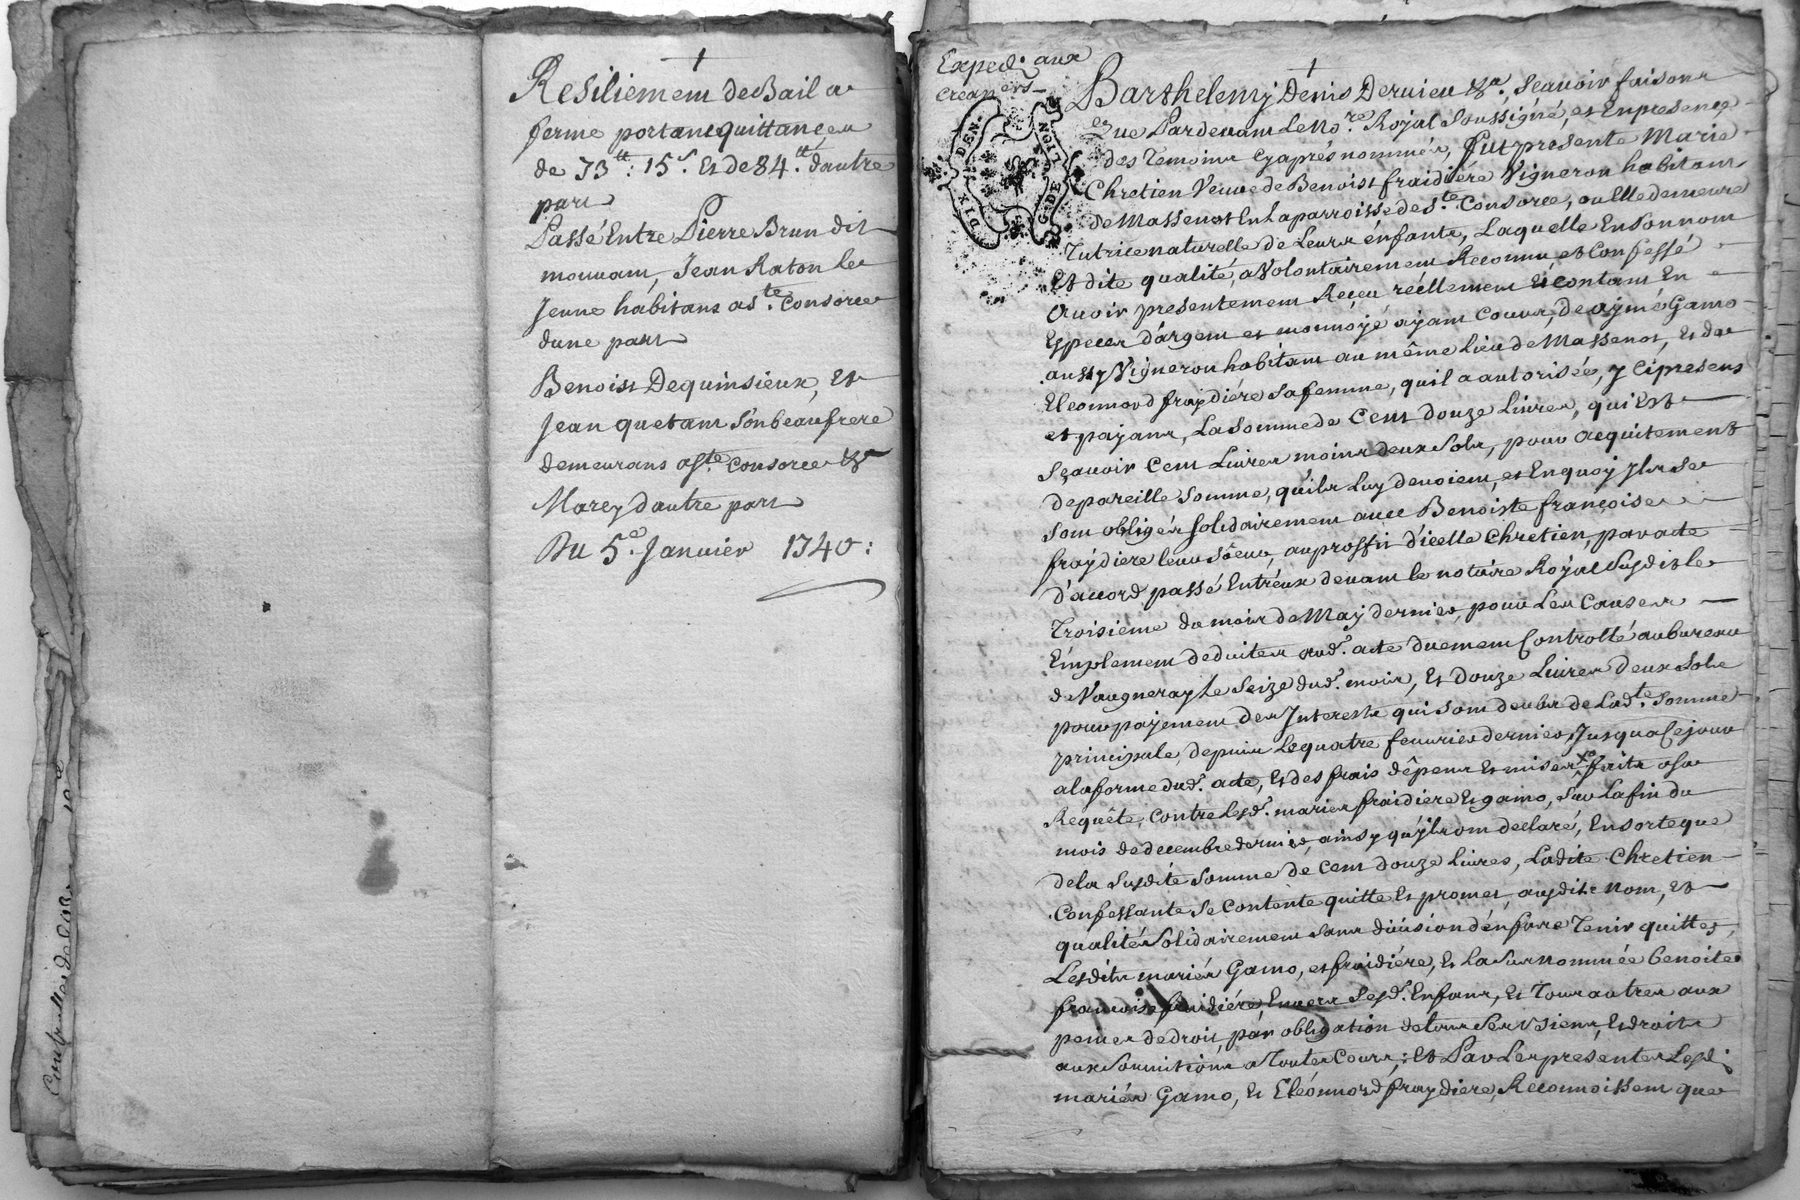 Resiliement de Bail a
ferme portant quittance
de 73ᵗᵗ: 15ˢ. Et de 84ᵗᵗ. dautre
part
Passé Entre Pierre Brun dit
mouvant, Jean Raton le
Jeune habitans a Sᵗᵉ. Consorce
dune part
Benoist Dequinsieux, Et
Jean quetant Son beaufrere
demeurans a Sᵗᵉ Consorce &ᵃ
Marcy dautre part
Du 5ᵉ. Janvier 1740:
Exped. aux
DIX DEN.
G. DE LION
Barthelemy Denis Dervieu &ᵃ. Sçavoir faisons
que Pardevant Le Noʳᵉ Royal Soussigné, et En presence
des Temoins Cyaprés nommés, fut presente Marie
Chretien Veuve de Benoist fraidiére Vigneron habitant
de Massenot En La parroisse de Sᵗᵉ Consorce, ou Elle demeure
Tutrice naturelle de Leurs énfants, Laquelle En Son nom
Et dite qualité, a Volontairement Reconnu et Confessé
avoir presentement Reçeu réellement Et contant En
Especes d'argent et monnoyé ayant Cours, de aymé Gamo
aussy Vigneron habitant au même Lieu de Massenot, Et de
Eleonnord fraydiére Sa femme, quil a autorisée, y Cipresens
et payans, La Somme de Cent douze Livres, qui Est
Sçavoir Cent Livres moins deux Sols, pour acquittement
de pareille Somme, qu'ils Luy devoient, et En quoy Ils Se
Sont obligés Solidairement avec Benoiste françoise
fraydiere leur Sœur, au proffit d'icelle Chretien, par acte
d'accord passé Entréux devant le notaire Royal Susdit le
Troisieme du mois de May dernier, pour Les Causes
Emplement deduites aud. acte duement Controllé au bureau
de Vaugneray Le Seize dud. mois, Et douze Livres deux Sols
pour payement des Interests qui Sont deubs de Ladᵗᵉ. Somme
principale, depuis Le quatre fevrier dernier Jusqua Ce jour
a la forme dud. acte, Et des frais dépens Et mises faits a Sa
Requête, Contre Lesd. mariés fraidiere Et gamo, Sur La fin du
mois de decembre dernier, ainsy qu'ils ont declaré, En sorte que
de la Susdite Somme de Cent douze Livres, Ladite Chretien
Confessante Se Contente quitte Et promet, ausdits nom, Et
qualités Solidairement Sans division d'en faire Tenir quittes,
Lesdits mariés Gamo, et fraidiére, Et la Surnommée benoite
françoise fraidiére, Envers Sesd. Enfans, Et Tous autres aux
peines de droit, par obligation de tous Ses Vsiens, Et droits
aux Soumitions a Toutes Cours; Et Par Les presentes Lesd.
mariés Gamo, Et Eléonnord fraydiere, Reconnoissent que